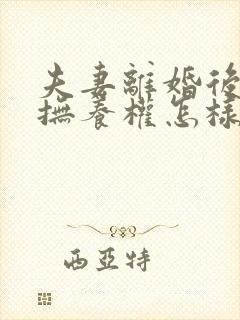 夫妻離婚後
撫養權怎樣
西亞特